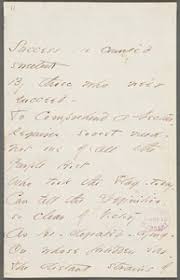 Success is counted
sweetest
By those who ne'er
succeed.
To Comprehend a Nectar
Requires sorest need.
Not one of all the
Purple Host
Who took the Flag today
Can tell the Definition
so clear of Victory
As he defeated dying
On whose forbidden ear
The distant strains of